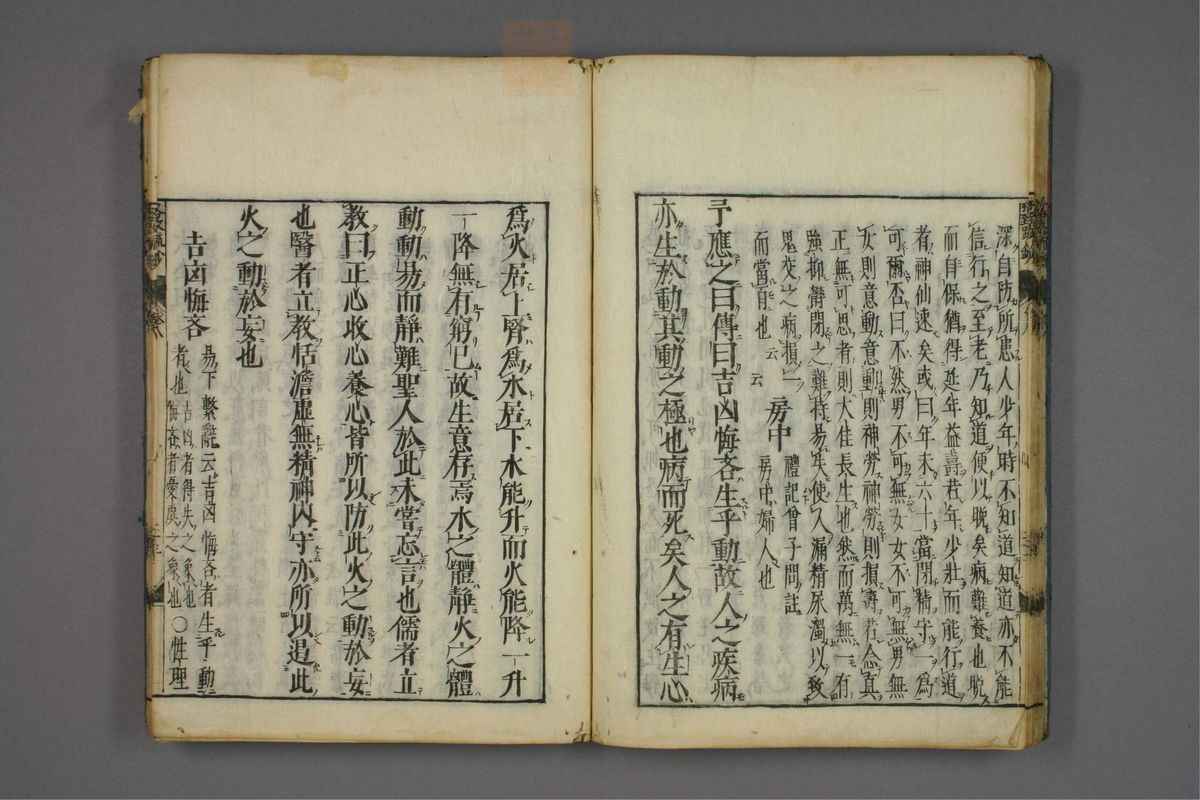 深自防所患人少年時不知道知道亦不能
信行之至老乃知道便以晩矣病難養也晩
而自保猶得延年益壽若年少壯而能行道
者神仙速矣或曰年未六十當閉精守一爲
可爾否曰不然男不可無女女不可無男無
女則意動意動則神勞神勞則損壽若念真
正無可思者則大佳長生也然而萬無一有
強抑欝閉之難持易失使人漏精尿濁以致
鬼交之病損一
而當百也云云
房中
禮記曾子問註
房中婦人也
予應之曰傳曰吉凶悔吝生乎動故人之疾病
亦生於動其動之極也病而死矣人之有生心
爲火居上腎爲水居下水能升而火能降一升
一降無有窮已故生意存焉水之體靜火之體
動動易而靜難聖人於此未嘗忘言也儒者立
教曰正心收心養心皆所以防此火之動於妄
也醫者立教恬澹虛無精神內守亦所以遏此
火之動於妄也
吉凶悔吝
易下繫辭云吉凶悔吝者生乎動
者也吉凶者得失之象也
悔吝者憂虞之象也〇性理